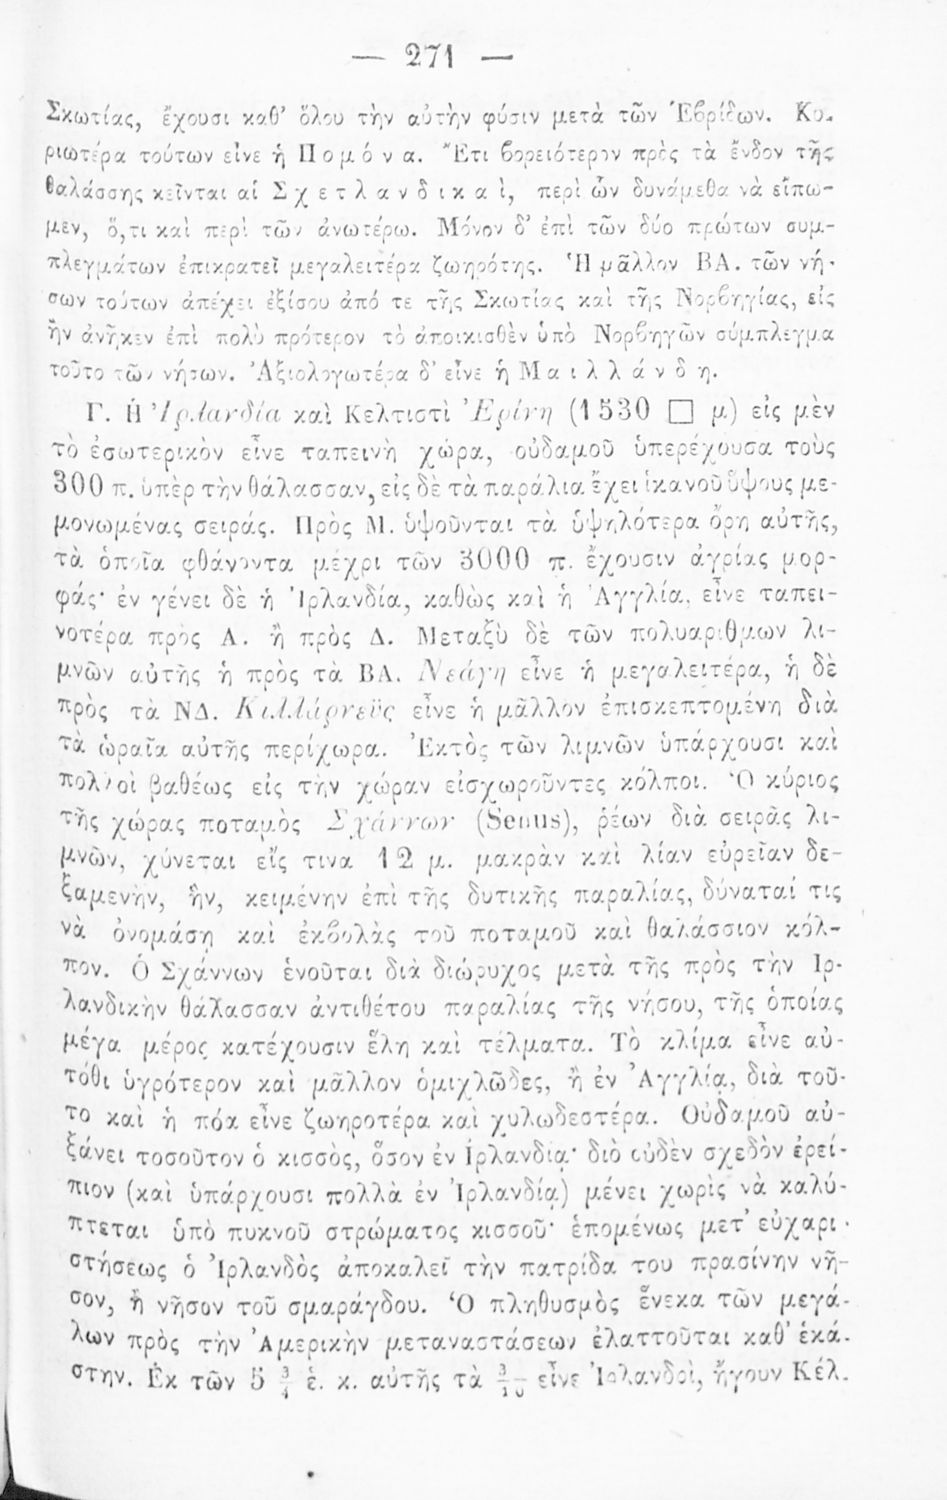 — 271 —
Σκωτίας, ἔχουσι καθ’ ὅλου τὴν αὐτὴν φύσιν μετὰ τῶν Ἑβρίδων. Κυ-
ριωτέρα τούτων εἶνε ἡ Πομόνα. Ἔτι βορειότερον πρὸς τὰ ἔνδον τῆς
θαλάσσης κεῖνται αἱ Σχετλανδικαὶ, περὶ ὧν δυνάμεθα νὰ εἴπω-
μεν, ὅ,τι καὶ περὶ τῶν ἀνωτέρω. Μόνον δ’ ἐπὶ τῶν δύο πρώτων συμ-
πλεγμάτων ἐπικρατεῖ μεγαλειτέρα ζωηρότης. Ἡ μᾶλλον ΒΑ. τῶν νή-
σων τούτων ἀπέχει ἐξίσου ἀπό τε τῆς Σκωτίας καὶ τῆς Νορβηγίας, εἰς
ἣν ἀνῆκεν ἐπὶ πολὺ πρότερον τὸ ἀποικισθὲν ὑπὸ Νορβηγῶν σύμπλεγμα
τοῦτο τῶν νήσων. Ἀξιολογωτέρα δ’ εἶνε ἡ Μαιλλάνδη.
Γ. Ἡ Ἰρλανδία καὶ Κελτιστὶ Ἐρίνη (1530 □ μ) εἰς μὲν
τὸ ἐσωτερικὸν εἶνε ταπεινὴ χώρα, οὐδαμοῦ ὑπερέχουσα τοὺς
300 π. ὑπὲρ τὴν θάλασσαν, εἰς δὲ τὰ παράλια ἔχει ἱκανοῦ ὕψους με-
μονωμένας σειράς. Πρὸς Μ. ὑψοῦνται τὰ ὑψηλότερα ὄρη αὐτῆς,
τὰ ὁποῖα φθάνοντα μέχρι τῶν 3000 π. ἔχουσιν ἀγρίας μορ-
φάς· ἐν γένει δὲ ἡ Ἰρλανδία, καθὼς καὶ ἡ Ἀγγλία, εἶνε ταπει-
νοτέρα πρὸς Α. ἢ πρὸς Δ. Μεταξὺ δὲ τῶν πολυαρίθμων λι-
μνῶν αὐτῆς ἡ πρὸς τὰ ΒΑ. Νεάγη εἶνε ἡ μεγαλειτέρα, ἡ δὲ
πρὸς τὰ ΝΔ. Κιλλάρνεϋς εἶνε ἡ μᾶλλον ἐπισκεπτομένη διὰ
τὰ ὡραῖα αὐτῆς περίχωρα. Ἐκτὸς τῶν λιμνῶν ὑπάρχουσι καὶ
πολλοὶ βαθέως εἰς τὴν χώραν εἰσχωροῦντες κόλποι. Ὁ κύριος
τῆς χώρας ποταμὸς Σχάννων (Senus), ῥέων διὰ σειρᾶς λι-
μνῶν, χύνεται εἴς τινα 12 μ. μακρὰν καὶ λίαν εὐρεῖαν δε-
ξαμενὴν, ἣν, κειμένην ἐπὶ τῆς δυτικῆς παραλίας, δύναταί τις
νὰ ὀνομάσῃ καὶ ἐκβολὰς τοῦ ποταμοῦ καὶ θαλάσσιον κόλ-
πον. Ὁ Σχάννων ἑνοῦται διὰ διώρυχος μετὰ τῆς πρὸς τὴν Ἰρ-
λανδικὴν θάλασσαν ἀντιθέτου παραλίας τῆς νήσου, τῆς ὁποίας
μέγα μέρος κατέχουσιν ἕλη καὶ τέλματα. Τὸ κλίμα εἶνε αὐ-
τόθι ὑγρότερον καὶ μᾶλλον ὁμιχλῶδες, ἢ ἐν Ἀγγλίᾳ, διὰ τοῦ-
το καὶ ἡ πόα εἶνε ζωηροτέρα καὶ χυλωδεστέρα. Οὐδαμοῦ αὐ-
ξάνει τοσοῦτον ὁ κισσὸς, ὅσον ἐν Ἰρλανδίᾳ· διὸ οὐδὲν σχεδὸν ἐρεί-
πιον (καὶ ὑπάρχουσι πολλὰ ἐν Ἰρλανδίᾳ) μένει χωρὶς νὰ καλύ-
πτεται ὑπὸ πυκνοῦ στρώματος κισσοῦ· ἑπομένως μετ’ εὐχαρι-
στήσεως ὁ Ἰρλανδὸς ἀποκαλεῖ τὴν πατρίδα του πρασίνην νῆ-
σον, ἢ νῆσον τοῦ σμαράγδου. Ὁ πληθυσμὸς ἕνεκα τῶν μεγά-
λων πρὸς τὴν Ἀμερικὴν μεταναστάσεων ἐλαττοῦται καθ’ ἑκά-
στην. Ἐκ τῶν 5 3/4 ἑ. κ. αὐτῆς τὰ 3/10 εἶνε Ἰρλανδοὶ, ἤγουν Κέλ-